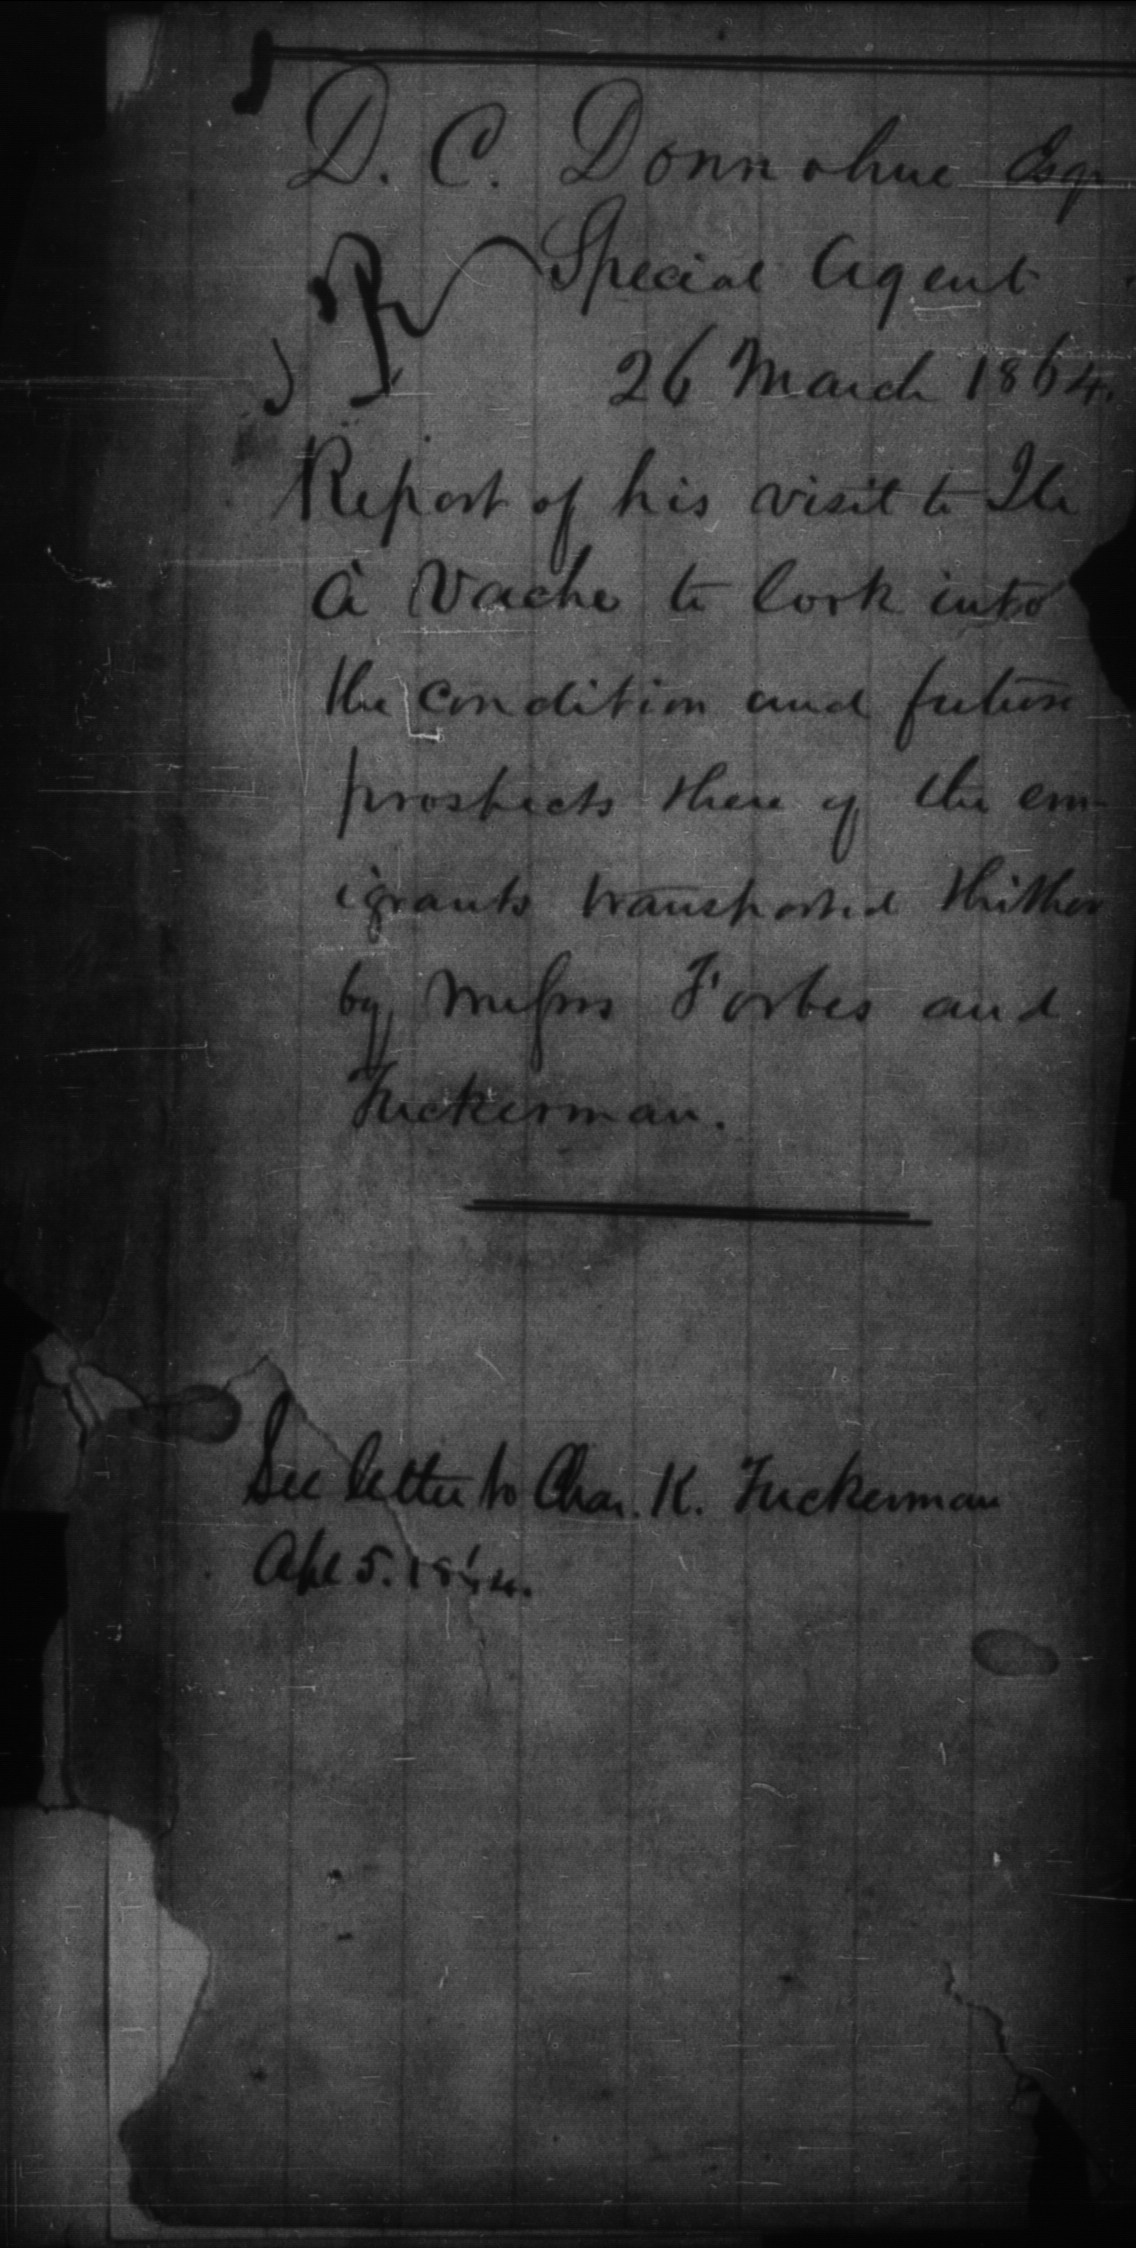 D. C. Donnohue Esqr
Special Agent
26 March 1864.
Report of his visit to Ile
à Vache to look into
the condition and future
prospects there of the em-
igrants transported thither
by Messrs Forbes and
Tuckerman.
See letter to Chas. K. Tuckerman
Apl 5. 1864.